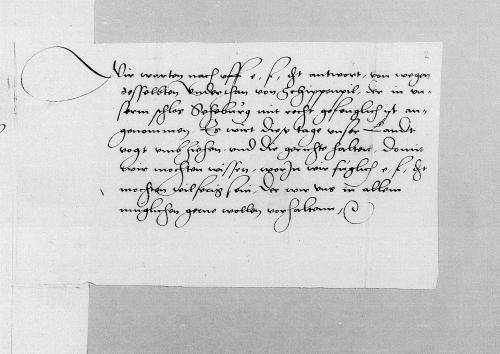 Wir warten noch uff e. f. dt antwort, von wegen
desselbten undersassen von Schippenpeil, der in un-
serm schlos Seheburg mit recht gefenglich ist an-
genommen. Es wirt diese tage unser Landt
vogt umbziehen und die gerichte halten, domit
wir mochten wissen, worzu wir füglich e. f. dt
mochten wilferig sein, der wir uns in allem
muglichen gerne wollen vorhaltenn
2